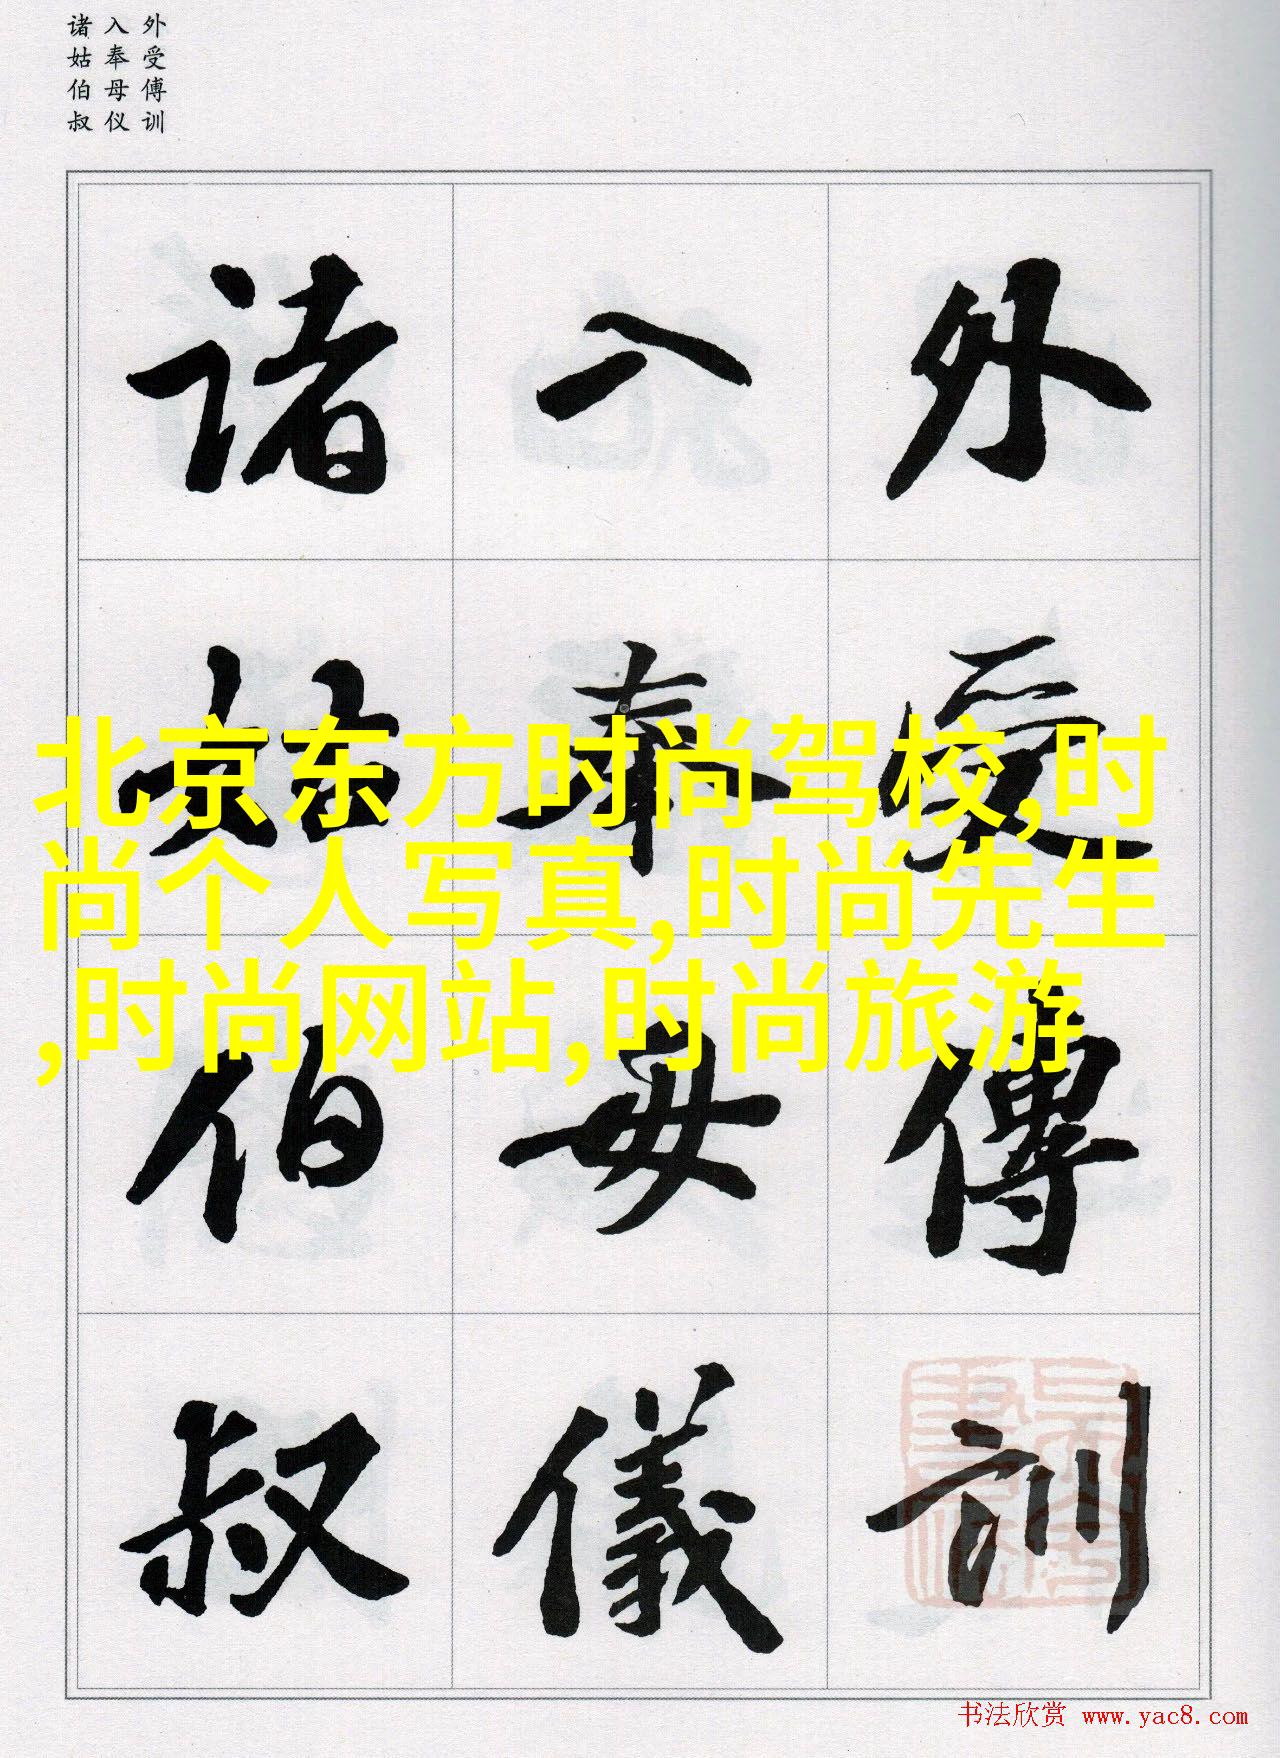 外受傅训
入奉母仪
诸姑伯叔
外受傅訓
入奉母儀
诸姑伯叔
北京东方时尚驾校,时
尚个人写真,时尚先生
,时尚网站,时尚旅游
书法欣赏 www.yac8.com